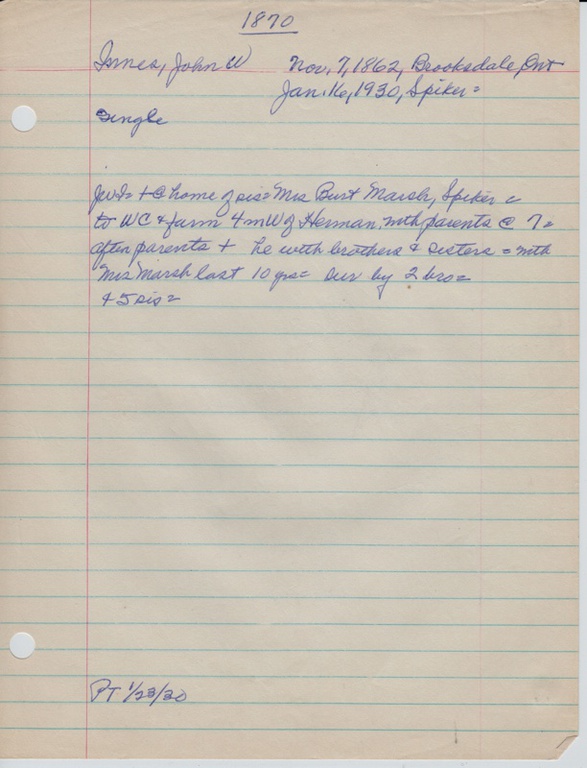 1870
Innes, John W Nov. 7, 1862, Brooksdale, Ont
Jan. 16, 1930, Spiker =
Single
JWI = + @ home of sis = Mrs Burt Marsh, Spiker =
to WC & farm 4 m W of Herman, with parents @ 7 =
after parents + he with brothers & sisters = with
Mrs Marsh last 10 yrs = sur by 2 bro =
& 5 sis =
PT 1/23/30